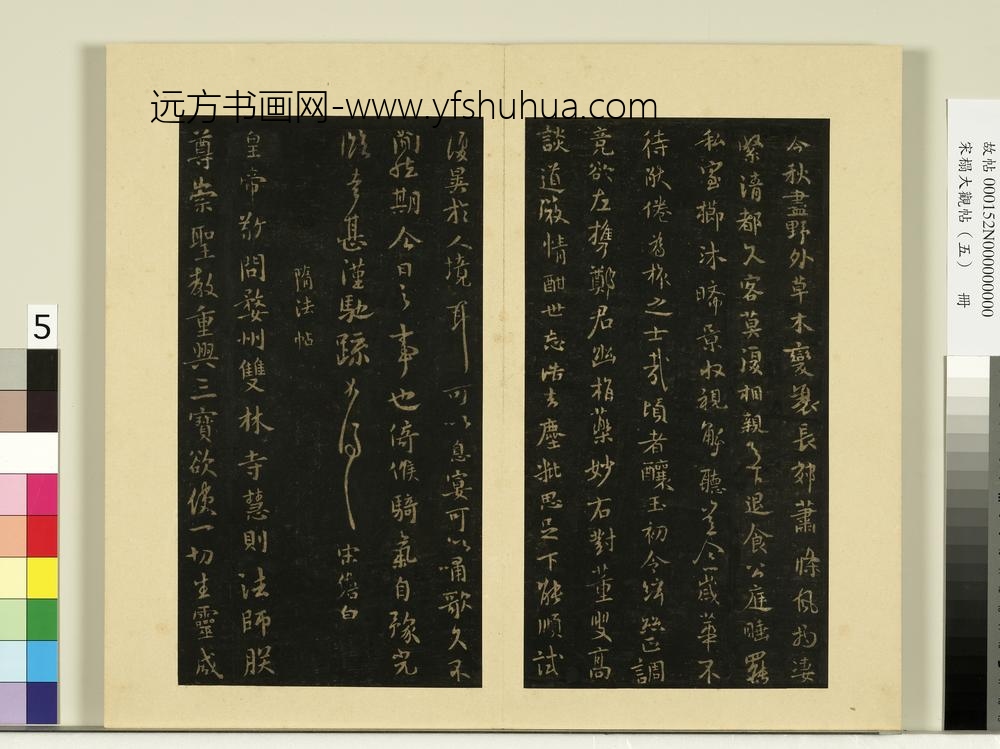 远方书画网-www.yfshuhua.com
故帖 000152N000000000
宋榻大觀帖（五） 冊
5
今秋盡野外草木變衰長郊蕭條風物淒
緊清都久客莫復相親足下退食公庭睡覺
私室櫛沐晞景收視解聽
歲華不
待
倦
杯之士
頃者釀玉初令
調
竟欲左攜鄭君
藥妙右對董叟高
談道
情酣世忘
去塵
思足下能順試
復異於人境耳可以息宴可以嘯歌久不
期今日之事也倚候騎氣自豫光
臨幸甚謹馳疏
宋儋白
隋法帖
皇帝敬問婺州雙林寺慧則法師朕
尊崇聖教重興三寶欲使一切生靈咸